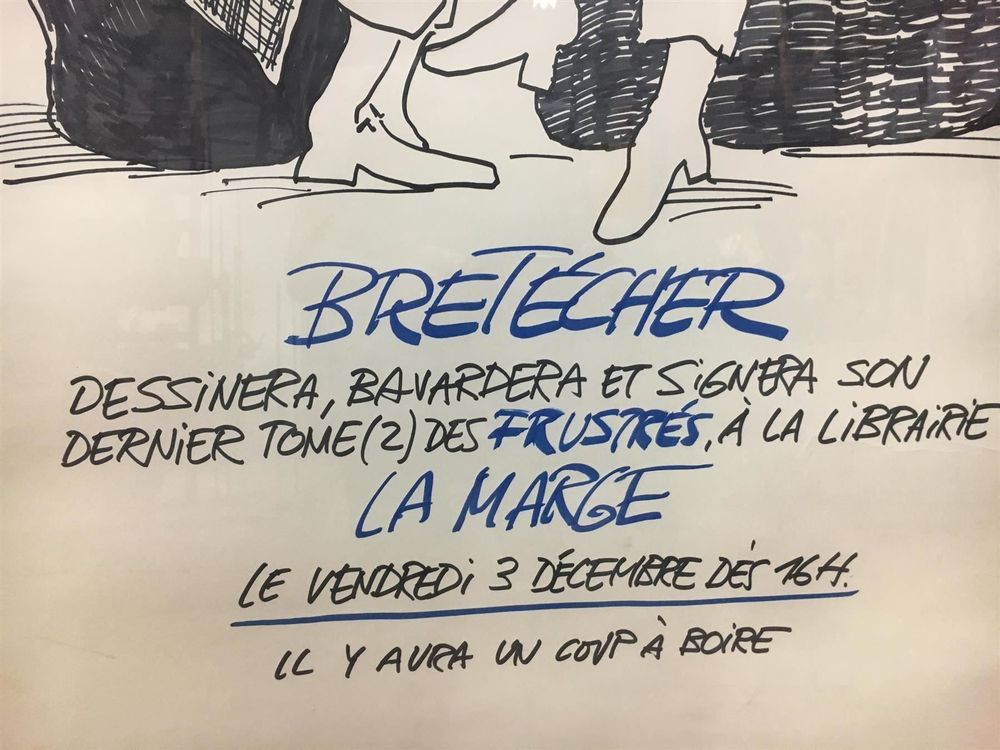 BRETÉCHER
DESSINERA, BAVARDERA ET SIGNERA SON
DERNIER TOME (2) DES FRUSTRÉS, À LA LIBRAIRIE
LA MARGE
LE VENDREDI 3 DÉCEMBRE DÈS 16H.
IL Y AURA UN COUP À BOIRE